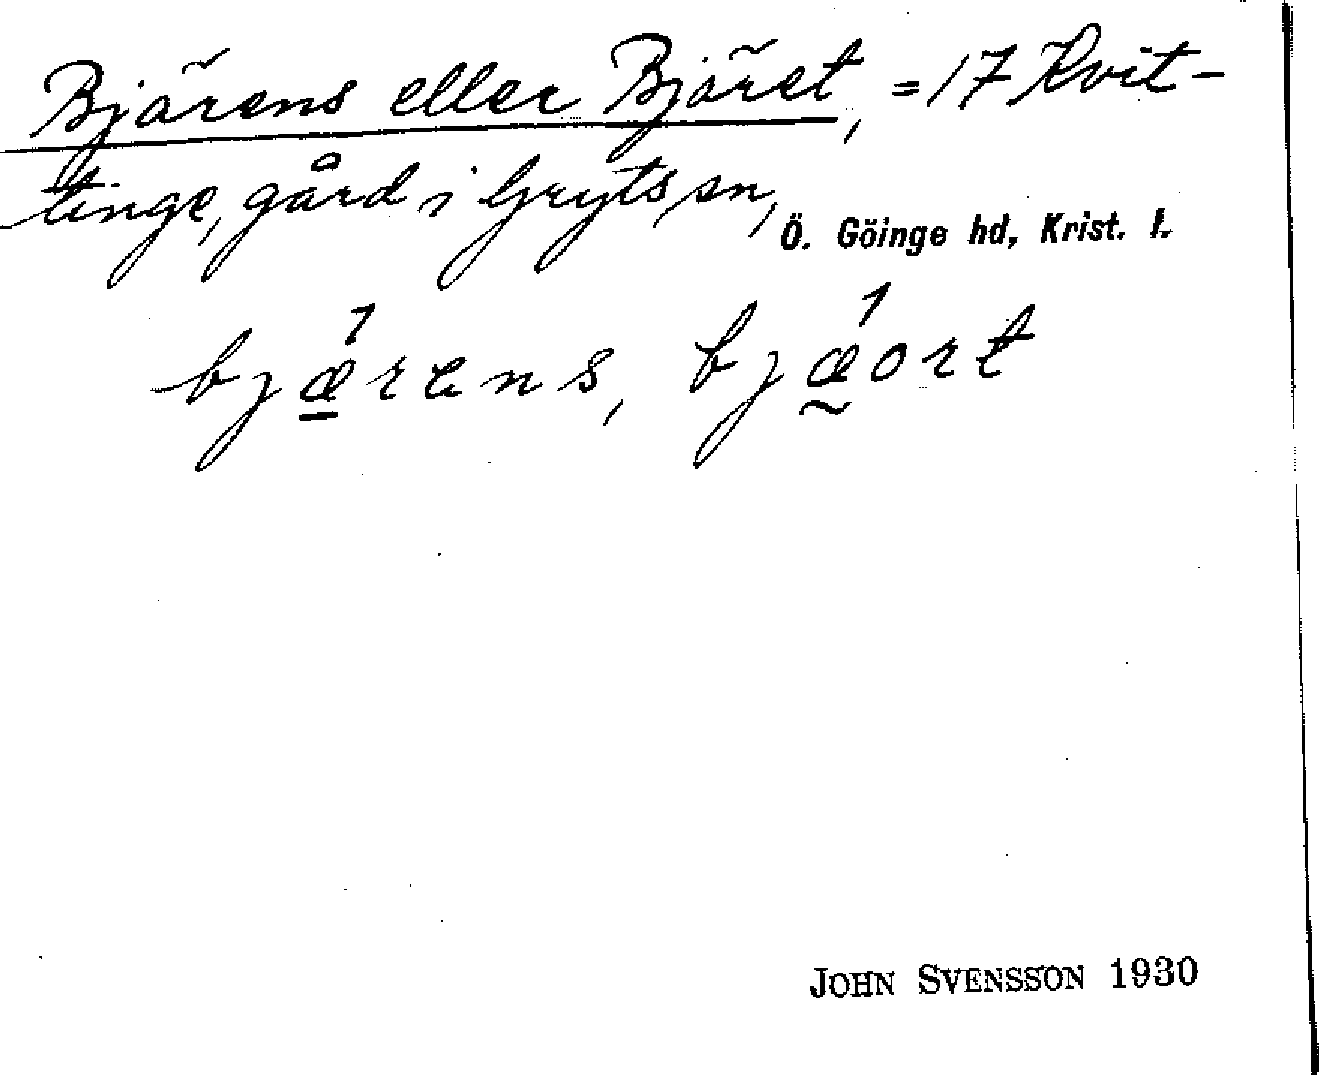 Bjärens eller Bjäret, = 17 Kvit-
tinge, gård i Gryts sn,
Ö. Göinge hd, Krist. l.
bjæ̱´rens, bjæ̰´ort
JOHN SVENSSON 1930